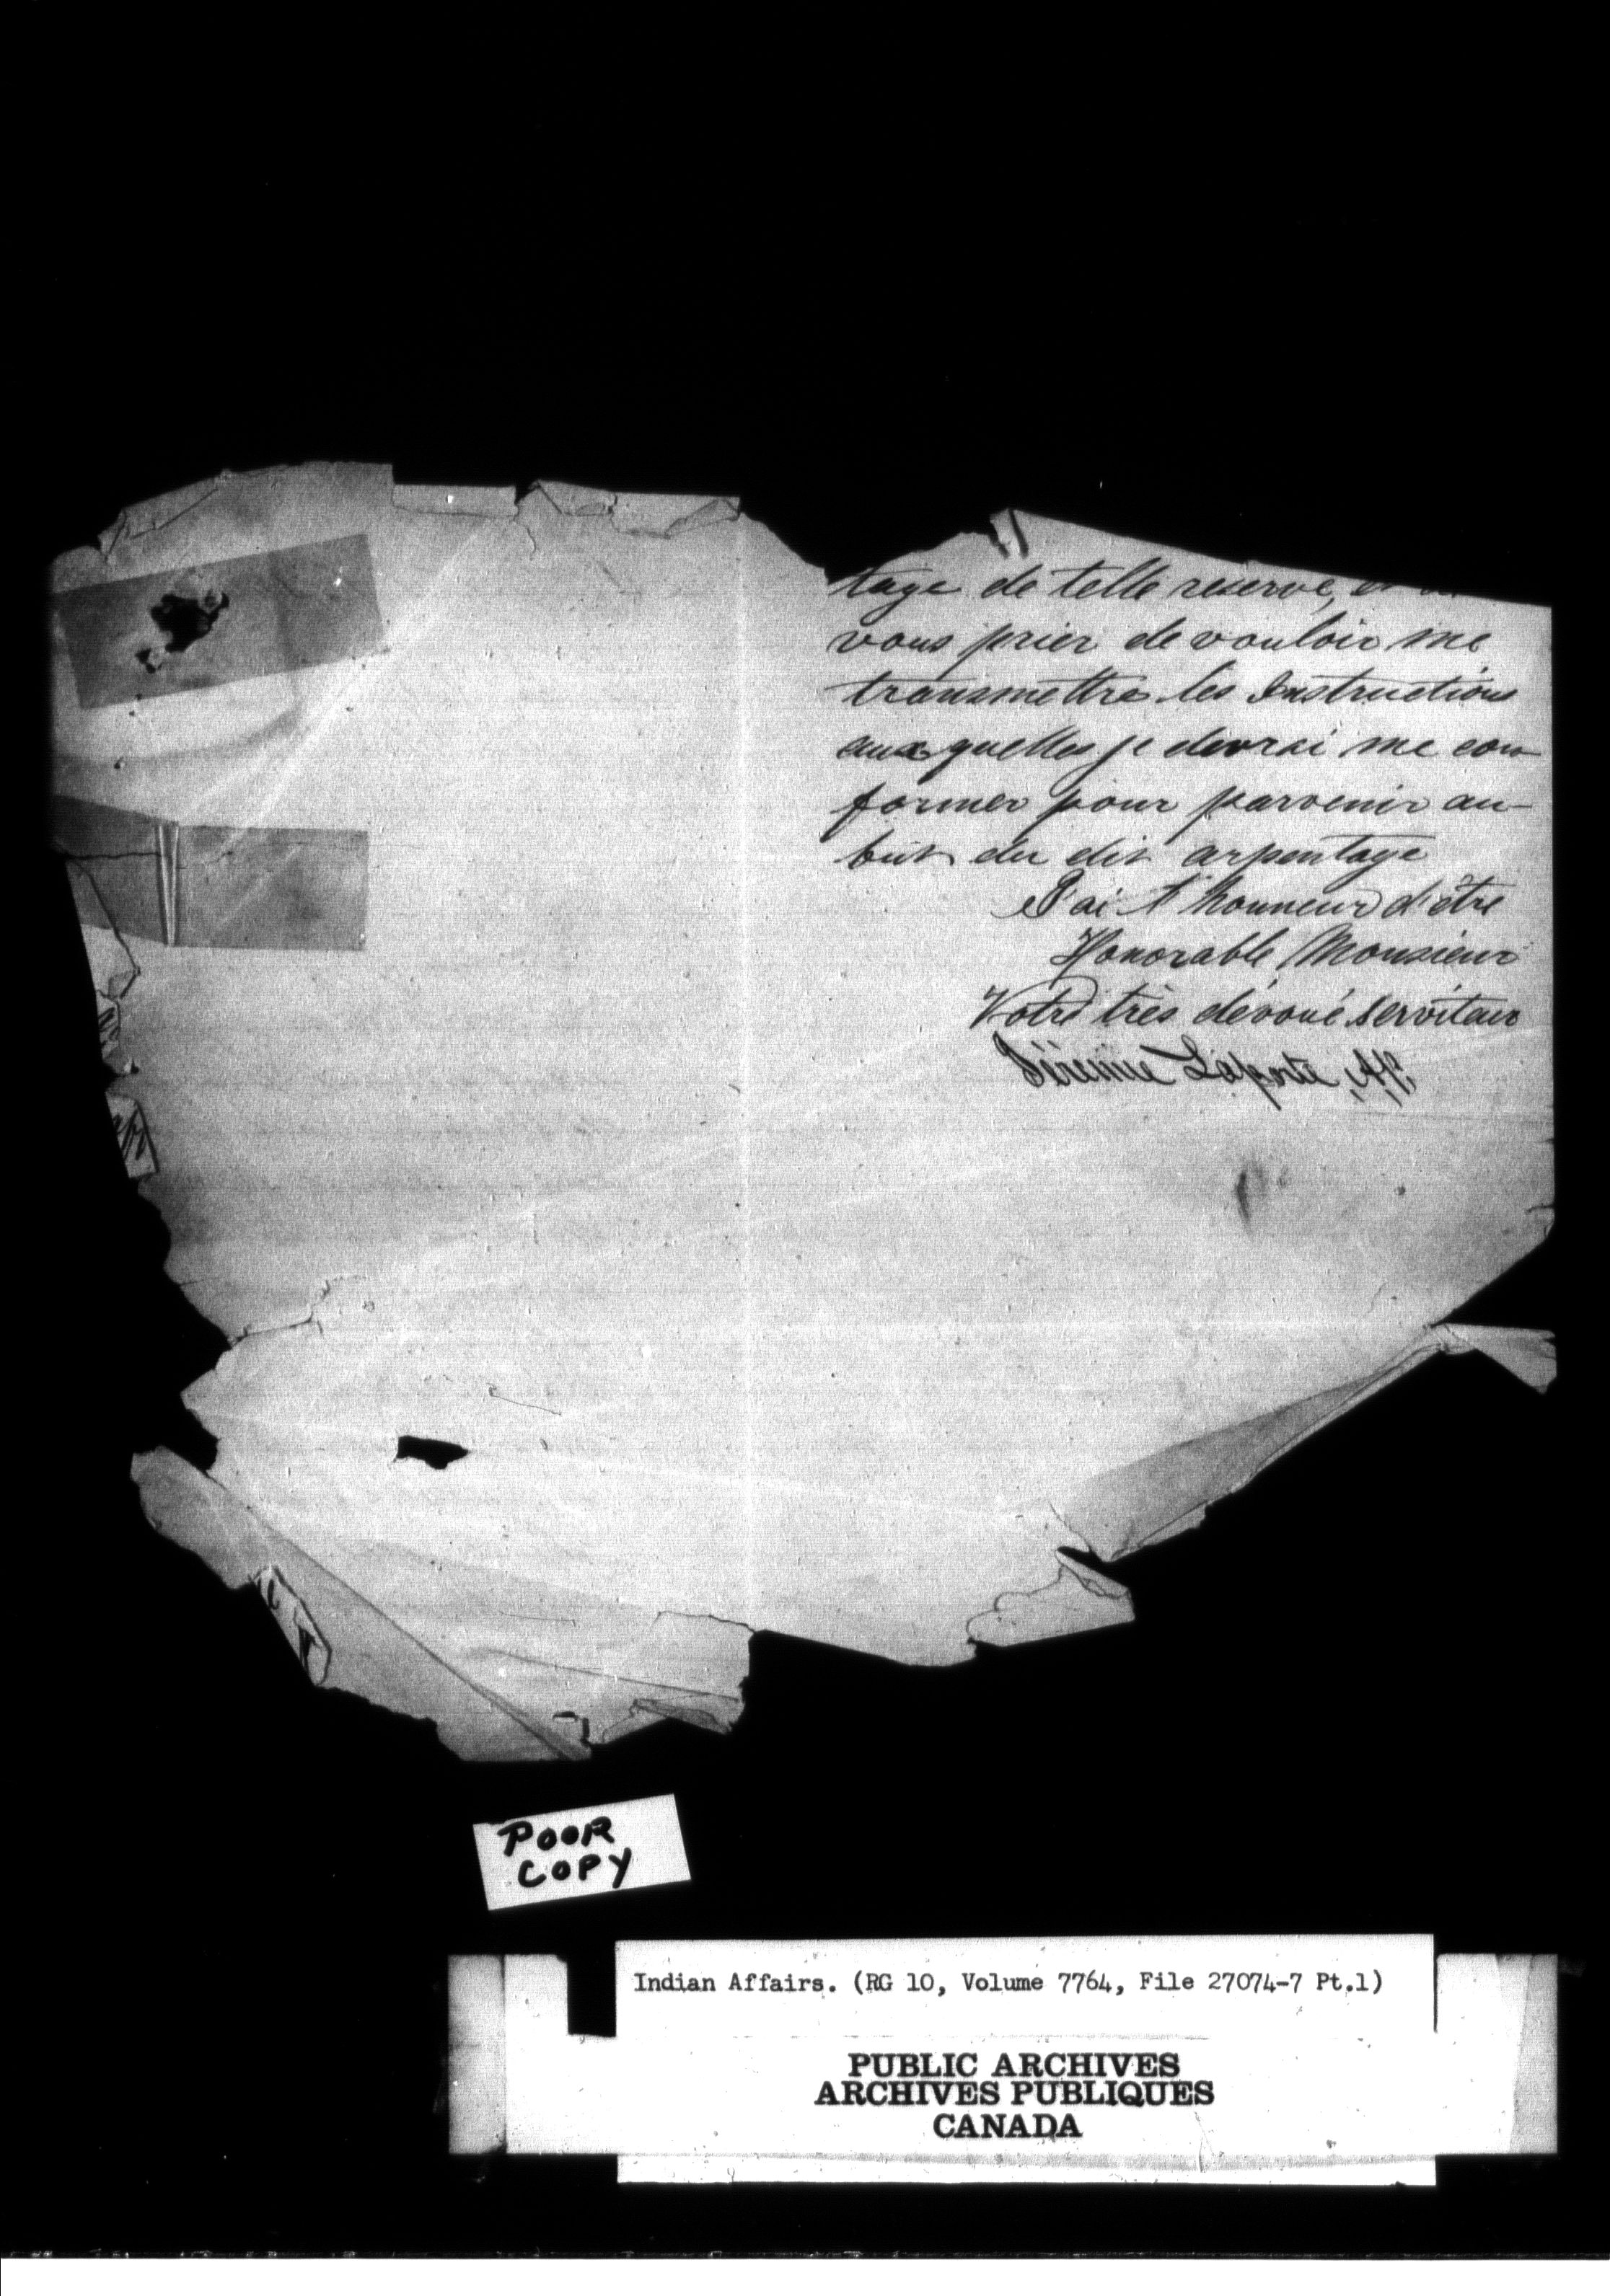 tage de telle reserve, et
vous prier de vouloir me
transmettre les Instructions
aux quelles je devrai me con
former pour parvenir au-
but du dit arpentage
J'ai l'honneur d'être
Honorable Monsieur
Votre très dévoué serviteur
Jérémie Laporte, A.P.
POOR
COPY
Indian Affairs. (RG 10, Volume 7764, File 27074-7 Pt.1)
PUBLIC ARCHIVES
ARCHIVES PUBLIQUES
CANADA